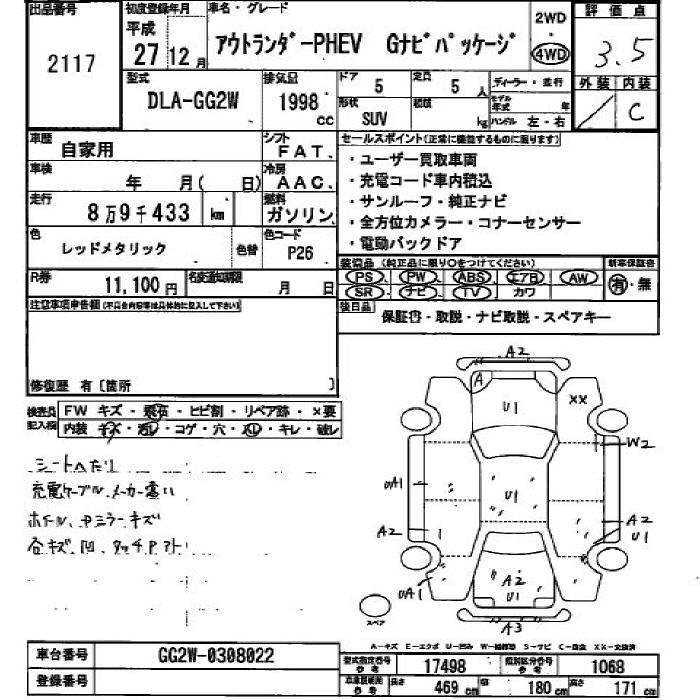 出品番号
2117
初度登録年月
平成
27 12月
車名・グレード
アウトランダｰPHEV Gナビパッケージ
2WD
・
4WD
評価点
3.5
外装 内装
C
型式
DLA-GG2W
排気量
1998 cc
ドア
5
定員
5 人
ディーラー・並行
形状
SUV
積載
kg
モデル年式 年
ハンドル 左・右
車歴
自家用
シフト
FAT、
車検
年 月( 日)
冷房
AAC、
走行
8万9千433 km
燃料
ガソリン
色
レッドメタリック
色替
色コード
P26
セールスポイント(正常に機能するものに限ります)
・ユーザー買取車両
・充電コード車内積込
・サンルーフ・純正ナビ
・全方位カメラー・コナーセンサー
・電動バックドア
R券
11,100円
名変通知期限
月 日
装備品 (純正品に限り○をつけてください)
新車保証書
PS PW ABS エアB AW
SR ナビ TV カワ
有・無
注意事項申告欄(不具合内容等は具体的に記入して下さい)
後日品
保証書・取説・ナビ取説・スペアキー
修復歴 有〔箇所 〕
検査員記入欄
FW キズ・飛石・ヒビ割・リペア跡・×要
内装 キズ・汚レ・コゲ・穴・スレ・キレ・破レ
シートヘたり
充電ケーブル、メーカー違い
ホイル、Fミラーキズ
各キズ、凹、タッチPアト
A2
A
U1
XX
W2
UA1
U1
A2
A2
U1
UA1
A2
U1
A3
スペア
A-キズ E-エクボ U-凹み W-補修跡 S-サビ C-腐食 XX-交換済
車台番号
GG2W-0308022
登録番号
型式指定番号 参考
17498
類別区分番号 参考
1068
車体説明用 参考
長さ
469 cm
幅
180 cm
高さ
171 cm